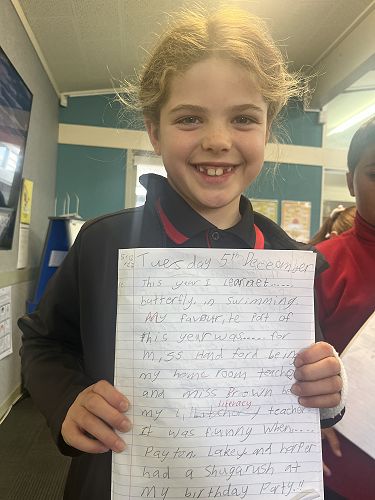 Tuesday 5th December
This year I learnet.....
butterfly in swimming.
My favourite Pat of
this year was..... for
Miss Handford being
my home room teacher
and miss Brown be
Literacy
my teacher.
It was funny when....
Payton Lakey and harper
had a Shugarush at
My birthday Party!!